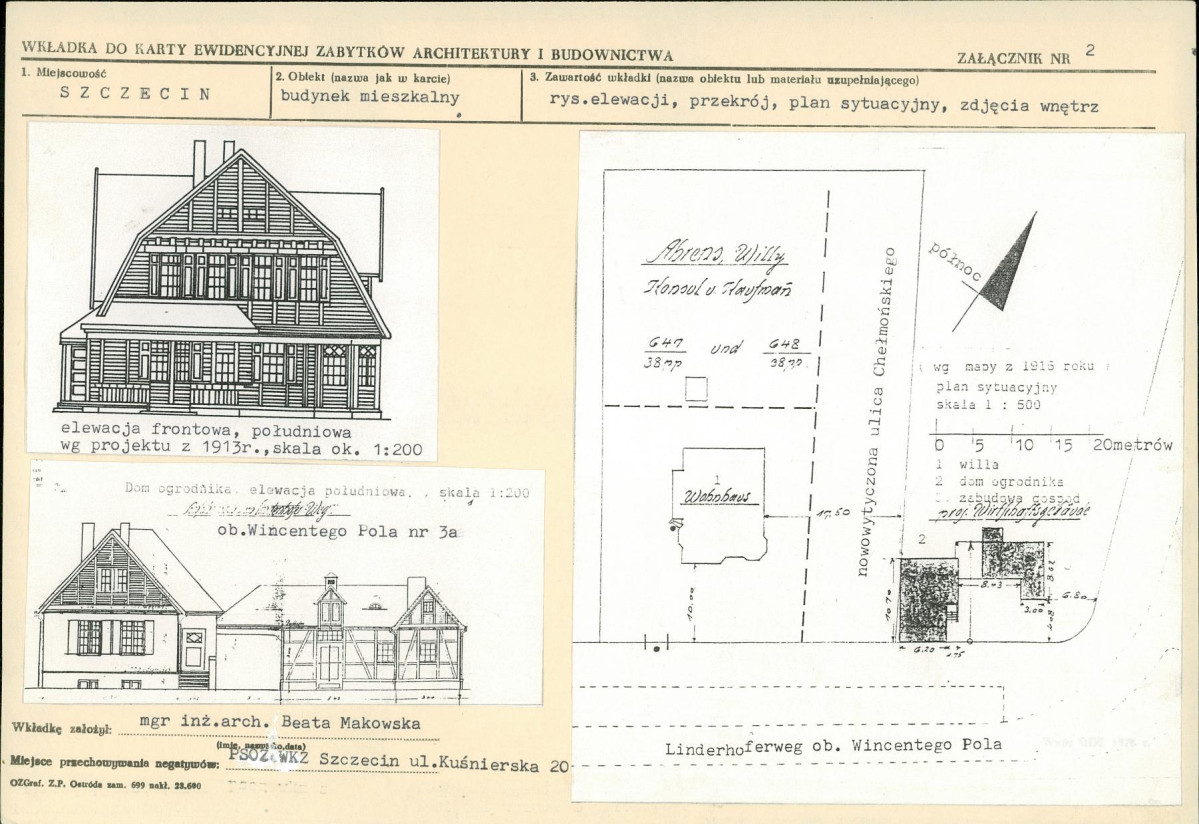 WKŁADKA DO KARTY EWIDENCYJNEJ ZABYTKÓW ARCHITEKTURY I BUDOWNICTWA
ZAŁĄCZNIK NR 2
1. Miejscowość
SZCZECIN
2. Obiekt (nazwa jak w karcie)
budynek mieszkalny
3. Zawartość wkładki (nazwa obiektu lub materiału uzupełniającego)
rys.elewacji, przekrój, plan sytuacyjny, zdjęcia wnętrz
elewacja frontowa, południowa
wg projektu z 1913r.,skala ok. 1:200
Dom ogrodnika. elewacja południowa. , skala 1:200
ob.Wincentego Pola nr 3a
Ahrens, Willy
Konsul u. Kaufmañ
647 und 648
38,pp 38,pp.
1
Wohnhaus
17.50
10.00
nowowytyczona ulica Chełmońskiego
północ
( wg mapy z 1916 roku )
plan sytuacyjny
skala 1 : 500
0 5 10 20metrów
1 willa
2 dom ogrodnika
3. zabudowa gospod.
proj. Wirtschaftsgebäude
2
10.70
8.43
3.00
6.80
6.20
1.75
Linderhoferweg ob. Wincentego Pola
Wkładkę założył: mgr inż.arch. Beata Makowska
(imię, nazwisko,data)
Miejsce przechowywania negatywów: PSOZ WKZ Szczecin ul.Kuśnierska 20
OZGraf. Z.P. Ostróda zam. 699 nakł. 28.600